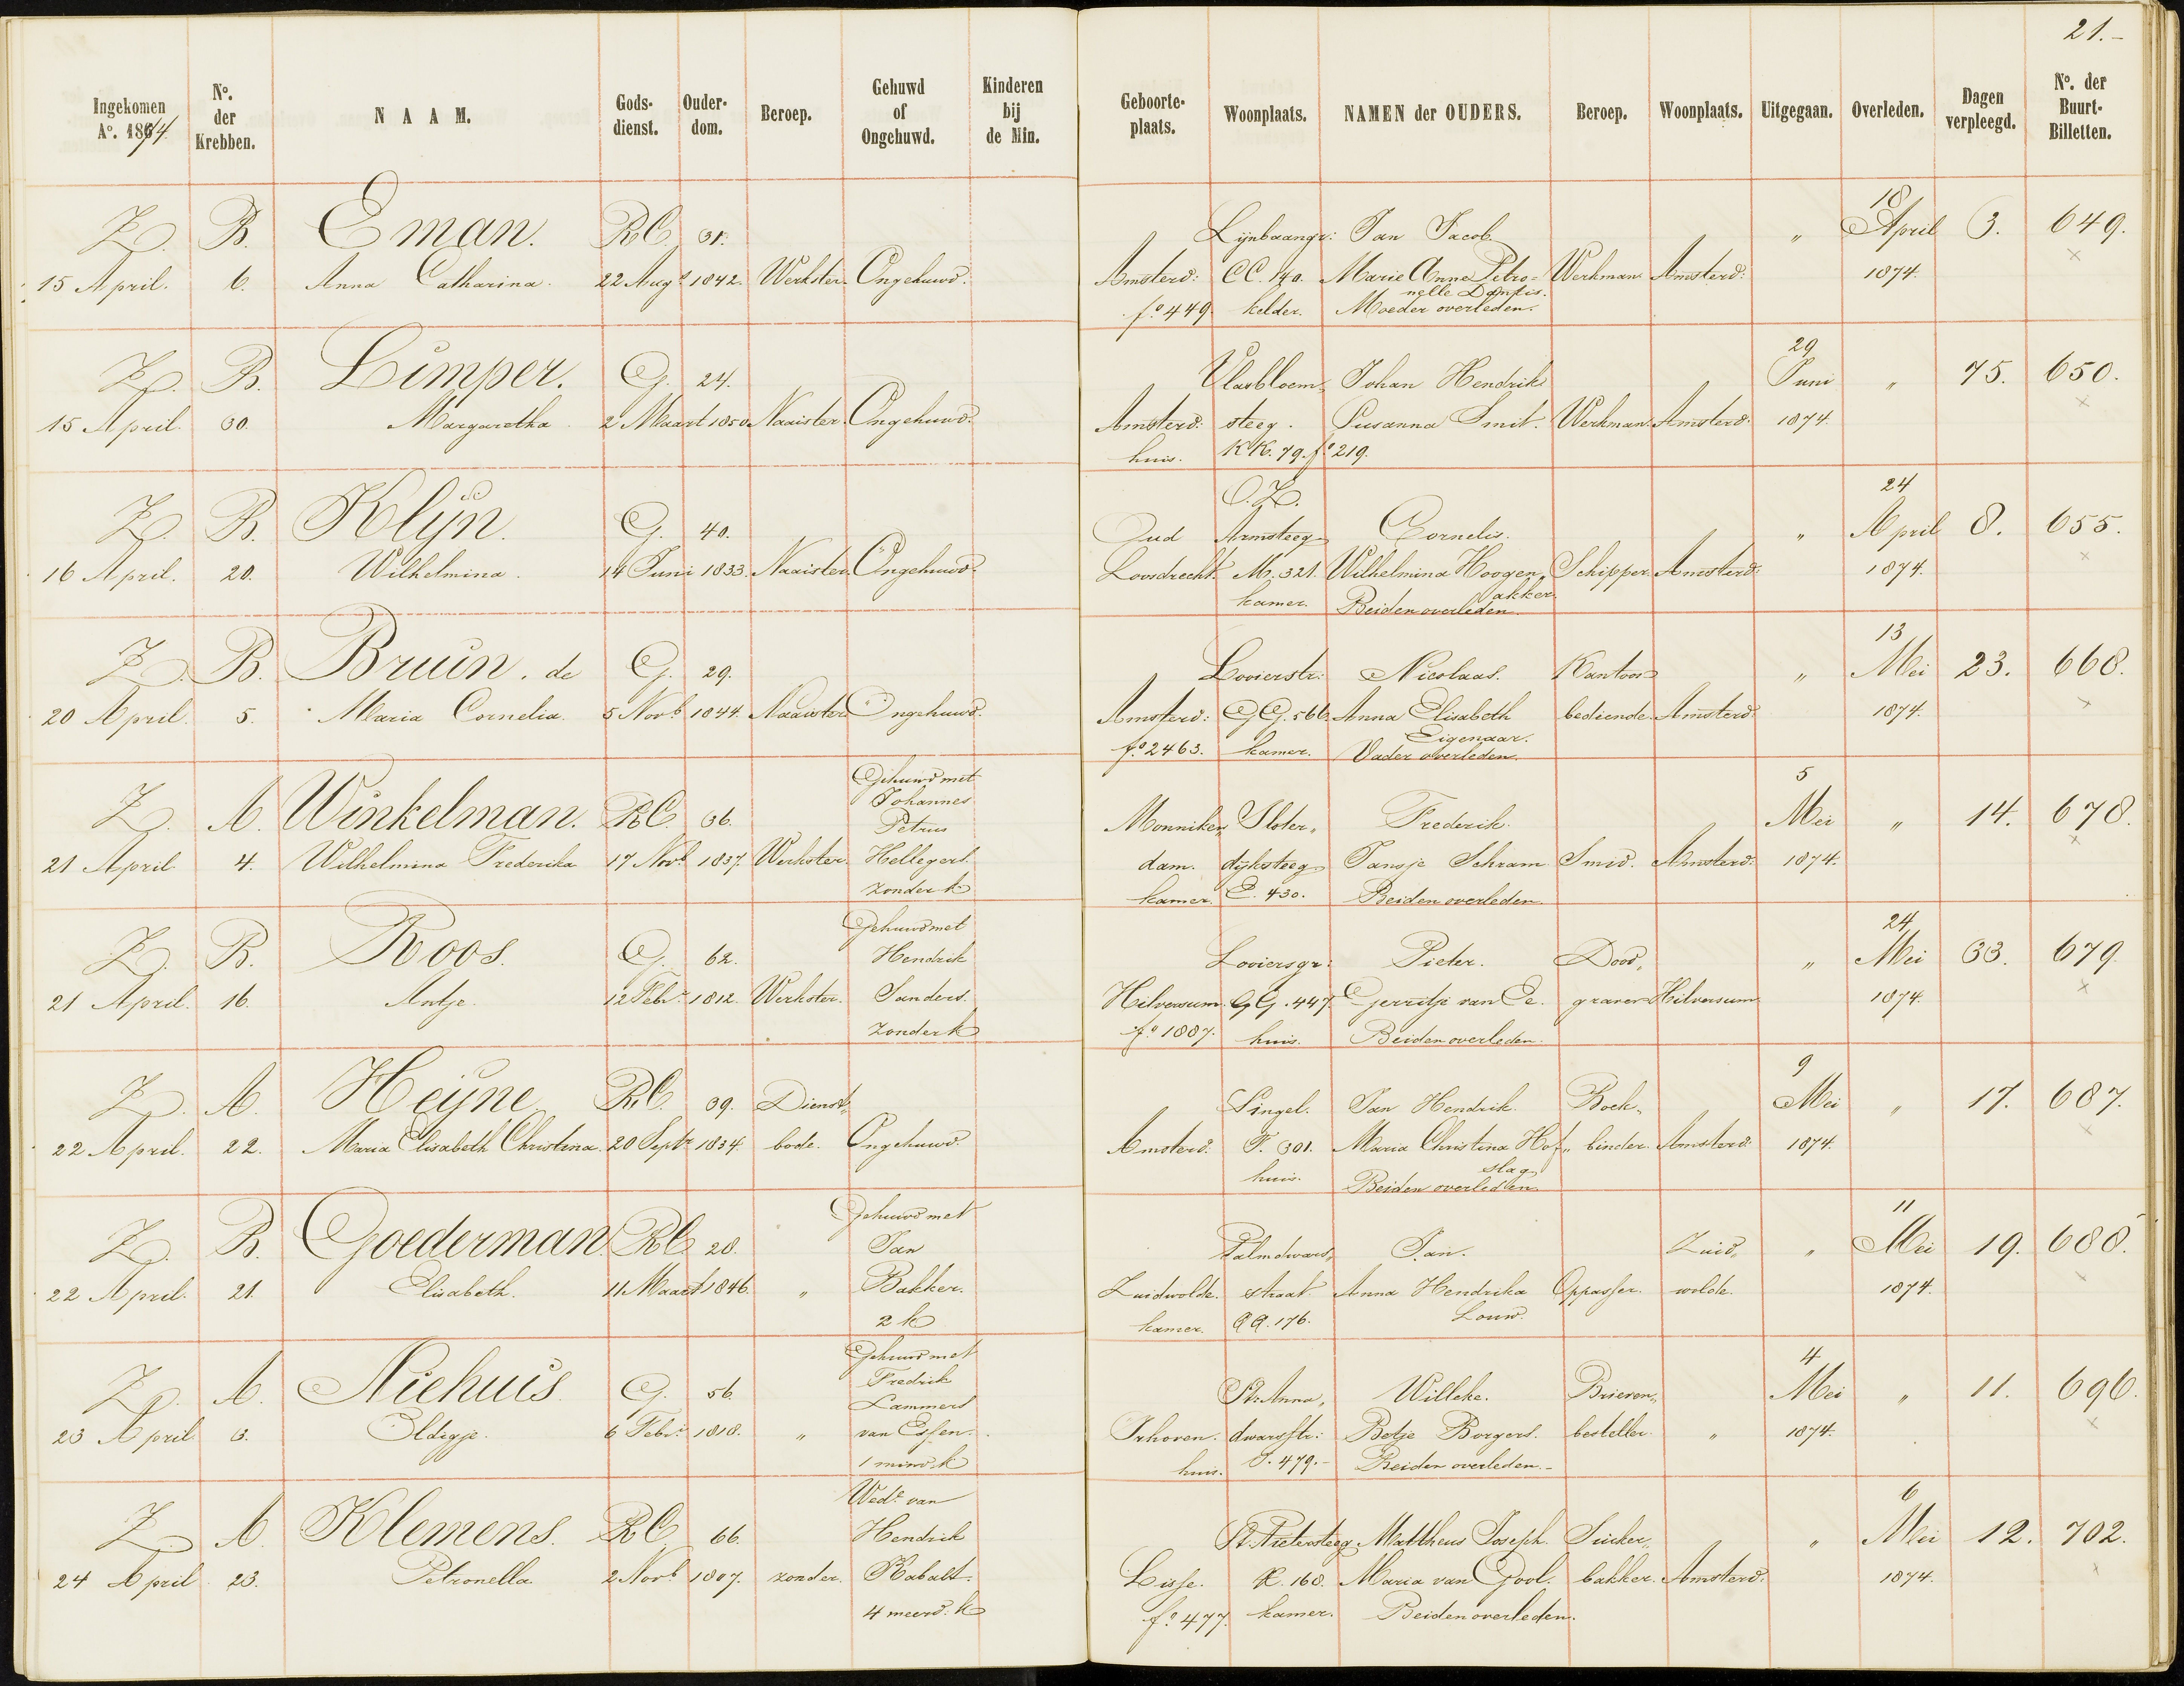 21.-
Ingekomen Ao. 1874 | No. der Krebben. | NAAM. | Gods-dienst. | Ouder-dom. | Beroep. | Gehuwd of Ongehuwd. | Kinderen bij de Min. | Geboorte-plaats. | Woonplaats. | NAMEN der OUDERS. | Beroep. | Woonplaats. | Uitgegaan. | Overleden. | Dagen verpleegd. | No. der Buurt-Billetten.
18
Z. B. Eman. RC. 31. Lijnbaangr: Jan Jacob " April 3. 649.
15 April. 6. Anna Catharina. 22 Augs 1842. Werkster. Ongehuwd. Amsterd: CC. 140. Marie Anne Petro= Werkman Amsterd: 1874. ×
nelle Donfis.
fo 449. kelder. Moeder overleden.
29
Z. B. Limper. G. 24. Vlasbloem„ Johan Hendrik Juni " 75. 650.
15 April 30. Margaretha. 2 Maart 1850 Naaister. Ongehuwd. Amsterd: steeg. Susanna Smit. Werkman. Amsterd: 1874. ×
huis. KK. 79. fo 219.
O.Z. 24
Z. B. Klijn. G. 40. Oud Armsteeg Cornelis. " April 8. 655.
16 April. 20. Wilhelmina. 14 Juni 1833. Naaister. Ongehuwd. Loosdrecht. M. 321. Wilhelmina Hoogen„ Schipper. Amsterd: 1874. ×
akker.
kamer. Beiden overleden.
13
Z. B. Bruin. de G. 29. Looierstr: Nicolaas. Kantoor " Mei 23. 668.
20 April. 5. Maria Cornelia. 5 Novb 1844. Naaister Ongehuwd. Amsterd: GG. 566. Anna Elisabeth bediende. Amsterd: 1874. ×
Eigenaar.
fo 2463. kamer. Vader overleden.
Gehuwd met 5
Johannes
Z. A. Winkelman. RC. 36. Petrus Monniken„ Sloter„ Frederik. Mei " 14. 678.
21 April 4. Wilhelmina Frederika 17 Novb 1837. Werkster. Hellegers. dam. dijksteeg Jansje Schram Smid. Amsterd: 1874. ×
zonder k kamer. E. 430. Beiden overleden.
Gehuwd met 24
Z. B. Roos. G. 62. Hendrik Looiersgr: Pieter. Dood„ " Mei 33. 679.
21 April. 16. Antje. 12 Febr 1812. Werkster. Sanders. Hilversum. GG. 447. Gerritje van Ee. graver Hilversum 1874. ×
zonder k fo 1887. huis. Beiden overleden.
9
Z. A. Heijne RC. 39. Dienst„ Singel. Jan Hendrik. Boek„ Mei " 17. 687.
22 April. 22. Maria Elisabeth Christina. 20 Septr 1834. bode. Ongehuwd. Amsterd: F. 301. Maria Christina Hof„ binder. Amsterd: 1874. ×
slag
huis. Beiden overleden
Gehuwd met 11
Z. B. Goederman RC 28. Jan Palmdwars„ Jan. Zuid„ " Mei 19. 688.
22 April. 21. Elisabeth. 11 Maart 1846. " Bakker. Zuidwolde. straat Anna Hendrika Oppasser. wolde. 1874. ×
2 k kamer. QQ. 176. Louw.
Gehuwd met 4
Fredrik
Z. A. Niehuis. G. 56. Lammers St. Anna„ Willeke. Brieven„ Mei " 11. 696.
23 April 3. Eldigje. 6 Febr 1818. " van Essen. Irhoven. dwarsstr: Betje Borgers. besteller. " 1874. ×
1 mind. k huis. S. 479.- Beiden overleden.-
Wede van 6
Z. A. Klemens. RC. 66. Hendrik St. Pietersteeg Mattheus Joseph. Suiker„ " Mei 12. 702.
24 April 23. Petronella 2 Novb 1807. zonder. Rabalt. Lisse. R. 168. Maria van Gool. bakker. Amsterd: 1874. ×
4 meerd. k fo 477. kamer. Beiden overleden.